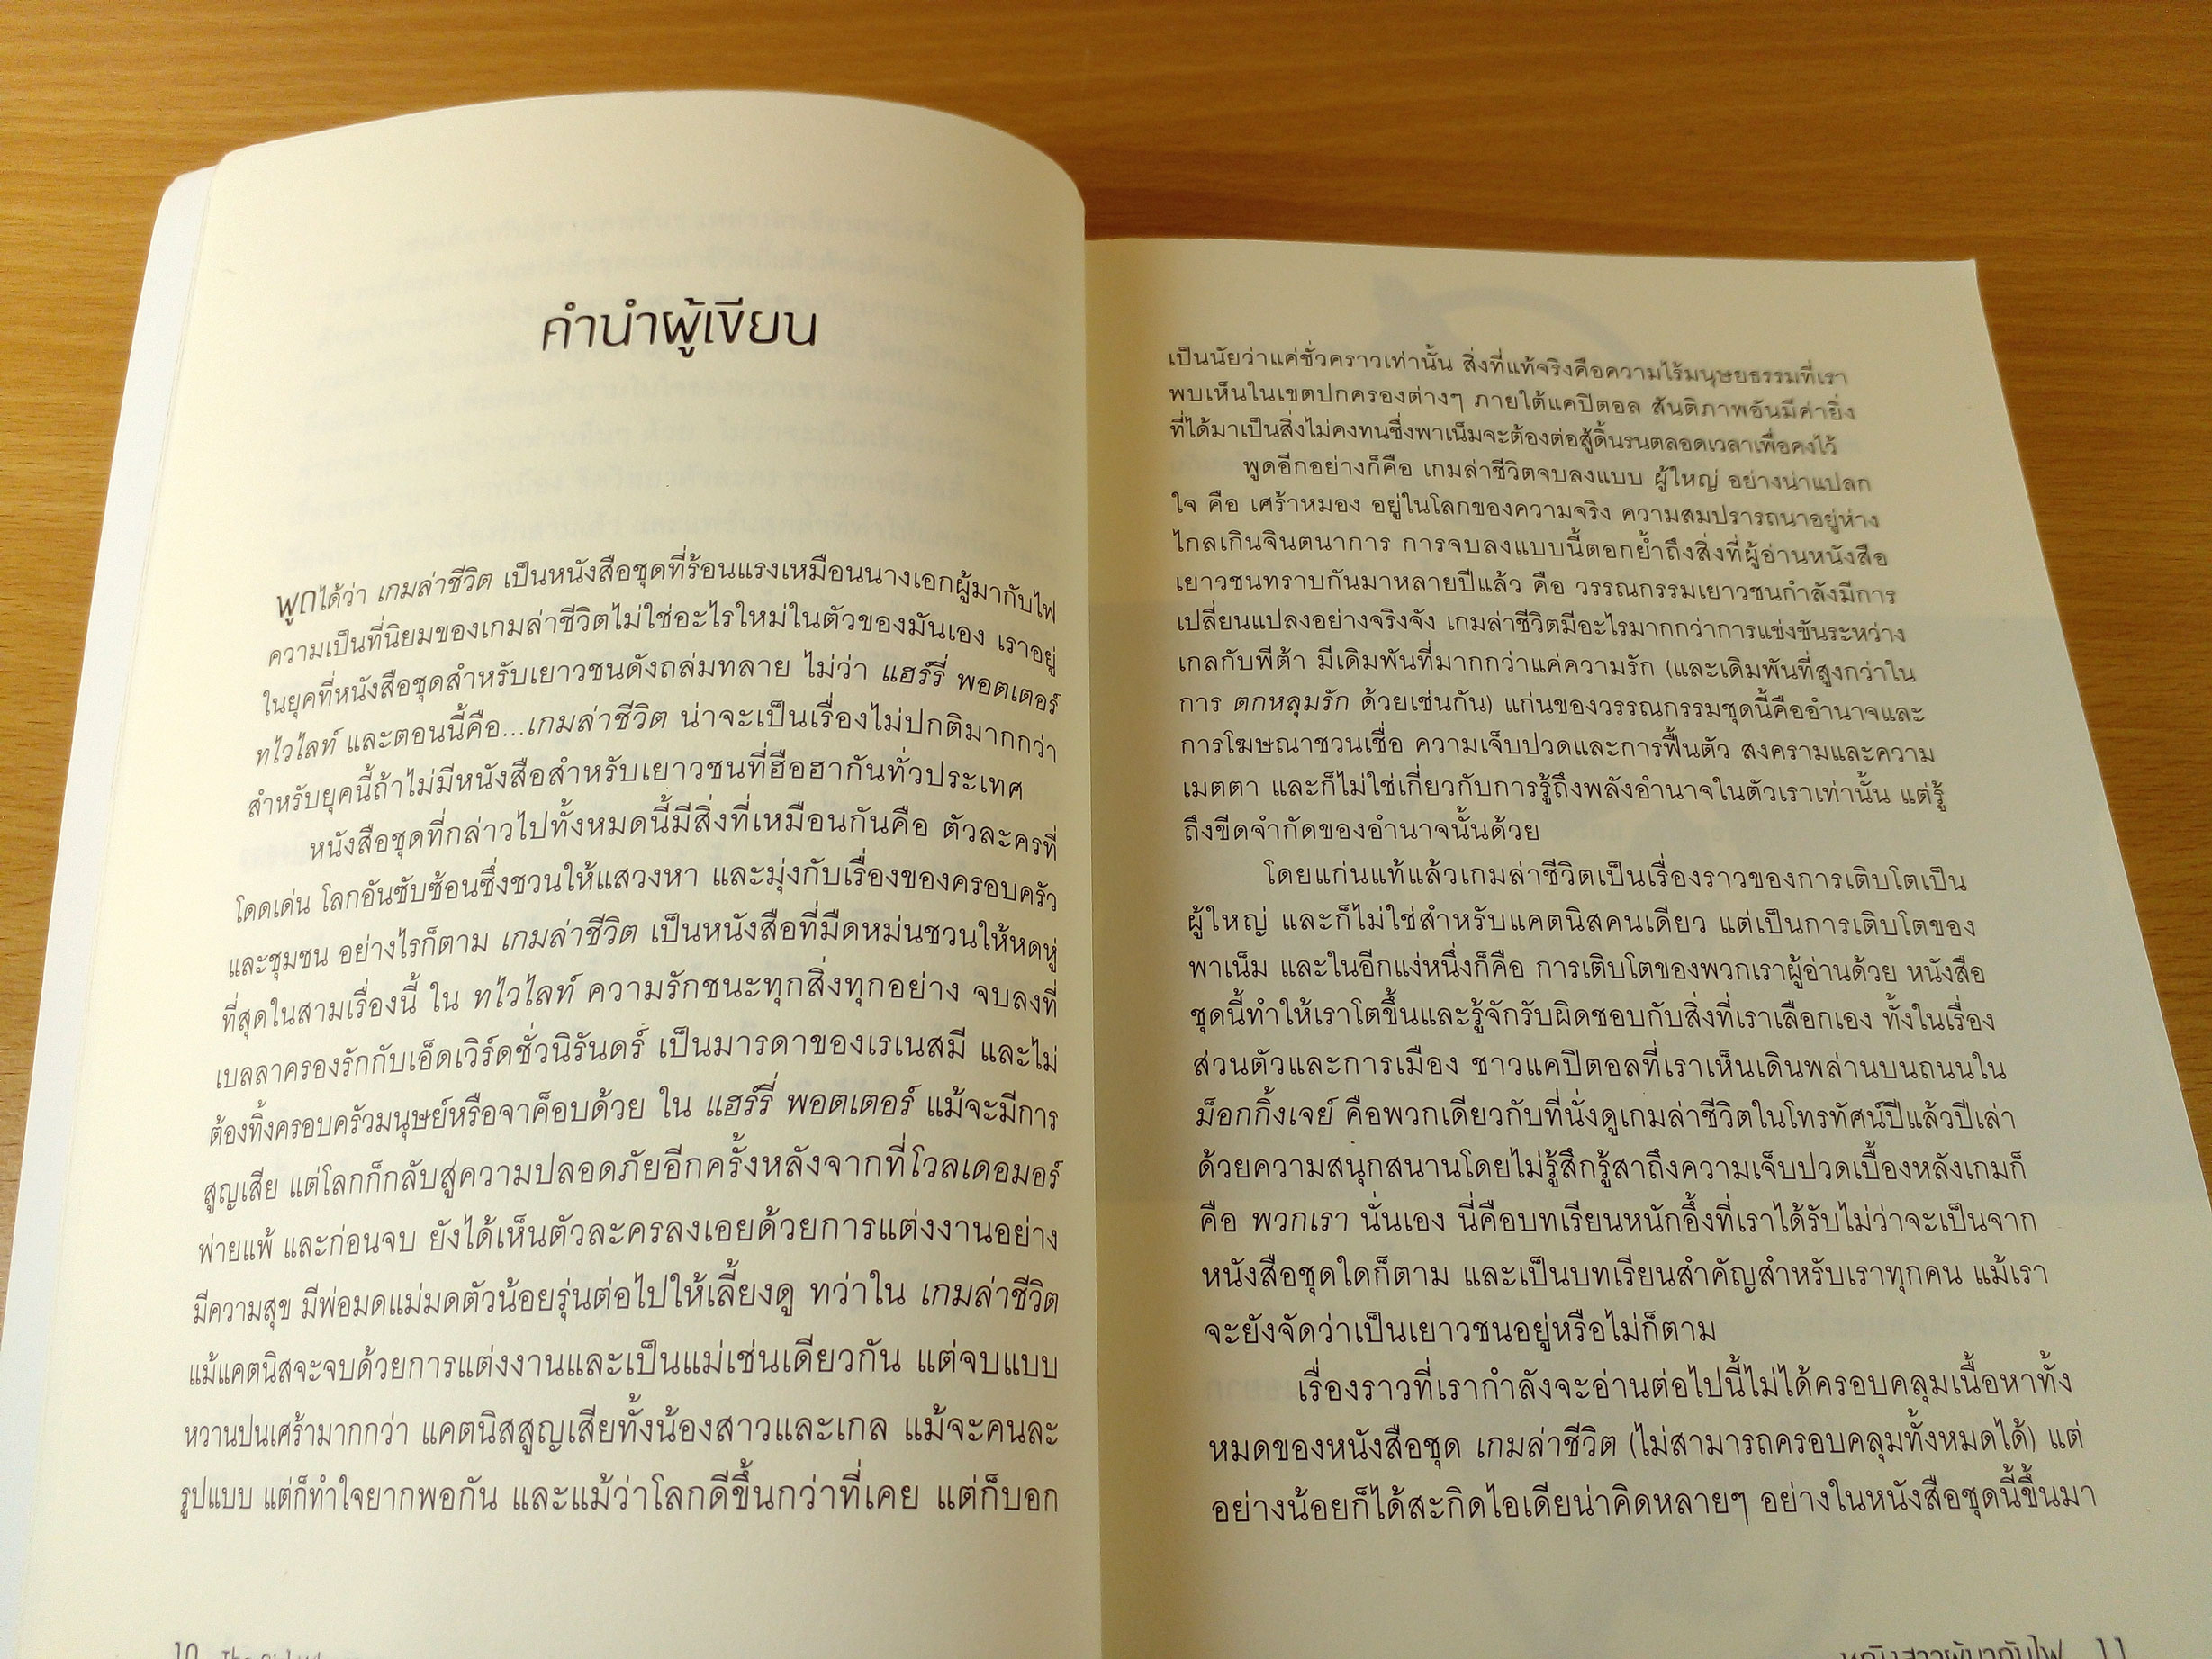 คำนำผู้เขียน
พูดได้ว่า เกมล่าชีวิต เป็นหนังสือชุดที่ร้อนแรงเหมือนนางเอกผู้มากับไฟ
ความเป็นที่นิยมของเกมล่าชีวิตไม่ใช่อะไรใหม่ในตัวของมันเอง เราอยู่
ในยุคที่หนังสือชุดสำหรับเยาวชนดังถล่มทลาย ไม่ว่า แฮร์รี่ พอตเตอร์
ทไวไลท์ และตอนนี้คือ...เกมล่าชีวิต น่าจะเป็นเรื่องไม่ปกติมากกว่า
สำหรับยุคนี้ถ้าไม่มีหนังสือสำหรับเยาวชนที่ฮือฮากันทั่วประเทศ
หนังสือชุดที่กล่าวไปทั้งหมดนี้มีสิ่งที่เหมือนกันคือ ตัวละครที่
โดดเด่น โลกอันซับซ้อนซึ่งชวนให้แสวงหา และมุ่งกับเรื่องของครอบครัว
และชุมชน อย่างไรก็ตาม เกมล่าชีวิต เป็นหนังสือที่มืดหม่นชวนให้หดหู่
ที่สุดในสามเรื่องนี้ ใน ทไวไลท์ ความรักชนะทุกสิ่งทุกอย่าง จบลงที่
เบลลาครองรักกับเอ็ดเวิร์ดชั่วนิรันดร์ เป็นมารดาของเรเนสมี และไม่
ต้องทิ้งครอบครัวมนุษย์หรือจาค็อบด้วย ใน แฮร์รี่ พอตเตอร์ แม้จะมีการ
สูญเสีย แต่โลกก็กลับสู่ความปลอดภัยอีกครั้งหลังจากที่โวลเดอมอร์
พ่ายแพ้ และก่อนจบ ยังได้เห็นตัวละครลงเอยด้วยการแต่งงานอย่าง
มีความสุข มีพ่อมดแม่มดตัวน้อยรุ่นต่อไปให้เลี้ยงดู ทว่าใน เกมล่าชีวิต
แม้แคตนิสจะจบด้วยการแต่งงานและเป็นแม่เช่นเดียวกัน แต่จบแบบ
หวานปนเศร้ามากกว่า แคตนิสสูญเสียทั้งน้องสาวและเกล แม้จะคนละ
รูปแบบ แต่ก็ทำใจยากพอกัน และแม้ว่าโลกดีขึ้นกว่าที่เคย แต่ก็บอก
10
เป็นนัยว่าแค่ชั่วคราวเท่านั้น สิ่งที่แท้จริงคือความไร้มนุษยธรรมที่เรา
พบเห็นในเขตปกครองต่างๆ ภายใต้แคปิตอล สันติภาพอันมีค่ายิ่ง
ที่ได้มาเป็นสิ่งไม่คงทนซึ่งพาเน็มจะต้องต่อสู้ดิ้นรนตลอดเวลาเพื่อคงไว้
พูดอีกอย่างก็คือ เกมล่าชีวิตจบลงแบบ ผู้ใหญ่ อย่างน่าแปลก
ใจ คือ เศร้าหมอง อยู่ในโลกของความจริง ความสมปรารถนาอยู่ห่าง
ไกลเกินจินตนาการ การจบลงแบบนี้ตอกย้ำถึงสิ่งที่ผู้อ่านหนังสือ
เยาวชนทราบกันมาหลายปีแล้ว คือ วรรณกรรมเยาวชนกำลังมีการ
เปลี่ยนแปลงอย่างจริงจัง เกมล่าชีวิตมีอะไรมากกว่าการแข่งขันระหว่าง
เกลกับพีต้า มีเดิมพันที่มากกว่าแค่ความรัก (และเดิมพันที่สูงกว่าใน
การ ตกหลุมรัก ด้วยเช่นกัน) แก่นของวรรณกรรมชุดนี้คืออำนาจและ
การโฆษณาชวนเชื่อ ความเจ็บปวดและการฟื้นตัว สงครามและความ
เมตตา และก็ไม่ใช่เกี่ยวกับการรู้ถึงพลังอำนาจในตัวเราเท่านั้น แต่รู้
ถึงขีดจำกัดของอำนาจนั้นด้วย
โดยแก่นแท้แล้วเกมล่าชีวิตเป็นเรื่องราวของการเติบโตเป็น
ผู้ใหญ่ และก็ไม่ใช่สำหรับแคตนิสคนเดียว แต่เป็นการเติบโตของ
พาเน็ม และในอีกแง่หนึ่งก็คือ การเติบโตของพวกเราผู้อ่านด้วย หนังสือ
ชุดนี้ทำให้เราโตขึ้นและรู้จักรับผิดชอบกับสิ่งที่เราเลือกเอง ทั้งในเรื่อง
ส่วนตัวและการเมือง ชาวแคปิตอลที่เราเห็นเดินพล่านบนถนนใน
ม็อกกิ้งเจย์ คือพวกเดียวกับที่นั่งดูเกมล่าชีวิตในโทรทัศน์ปีแล้วปีเล่า
ด้วยความสนุกสนานโดยไม่รู้สึกรู้สาถึงความเจ็บปวดเบื้องหลังเกมก็
คือ พวกเรา นั่นเอง นี่คือบทเรียนหนักอึ้งที่เราได้รับไม่ว่าจะเป็นจาก
หนังสือชุดใดก็ตาม และเป็นบทเรียนสำคัญสำหรับเราทุกคน แม้เรา
จะยังจัดว่าเป็นเยาวชนอยู่หรือไม่ก็ตาม
เรื่องราวที่เรากำลังจะอ่านต่อไปนี้ไม่ได้ครอบคลุมเนื้อหาทั้ง
หมดของหนังสือชุด เกมล่าชีวิต (ไม่สามารถครอบคลุมทั้งหมดได้) แต่
อย่างน้อยก็ได้สะกิดไอเดียน่าคิดหลายๆ อย่างในหนังสือชุดนี้ขึ้นมา
หญิงสาวผู้มากับไฟ 11